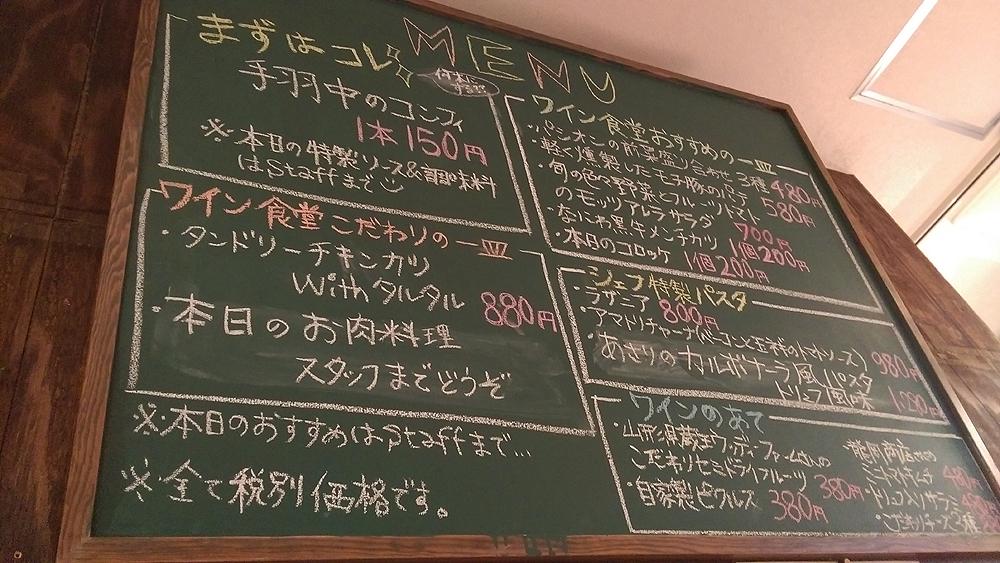 MENU
まずはコレ
手羽中のコンフィ
1本150円
※本日の特製ソース&調味料
はStaffまで
ワイン食堂こだわりの一皿
・タンドリーチキンカツ
Withタルタル 880円
・本日のお肉料理
スタッフまでどうぞ
※本日のおすすめはStaffまで…
※全て税別価格です。
ワイン食堂おすすめの一皿
・パシオンの前菜盛り合わせ3種 480円
・軽く燻製したモチ豚のロニア 580円
・旬の色々野菜とフルーツトマト
のモッツァレラサラダ 700円
・なにわ黒牛メンチカツ 1個200円
・本日のコロッケ 1個200円
シェフ特製パスタ
・ラザニア 800円
・アマトリチャーナ(ベーコンと玉ネギのトマトソース) 980円
・あさりのカルボナーラ風パスタ
トリュフ風味
ワインのあて
・山形県蔵王ウッディファームさんの
こだわりセミドライフルーツ 380円
・自家製ピクルス 380円
ミニトマトキムチ
・トリュフ入りサラミ